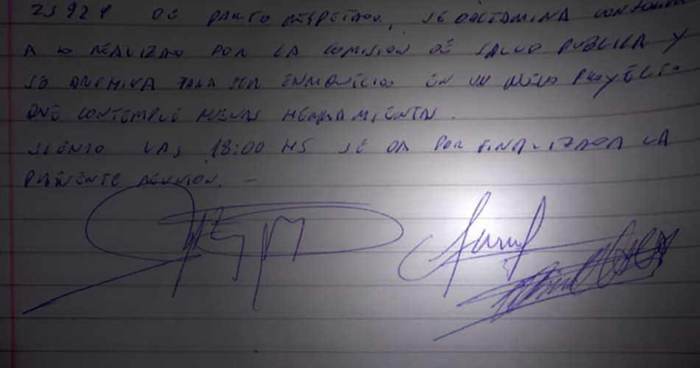 25929 DE PARTO RESPETADO, SE DICTAMINA CONFORME
A LO REALIZADO POR LA COMISION DE SALUD PUBLICA Y
SE PARA SER EN UN PROYECTO
QUE CONTEMPLE NUEVAS HERRAMIENTAS.
SIENDO LAS 18:00 HS SE DA POR FINALIZADA LA
PRESENTE REUNION. -